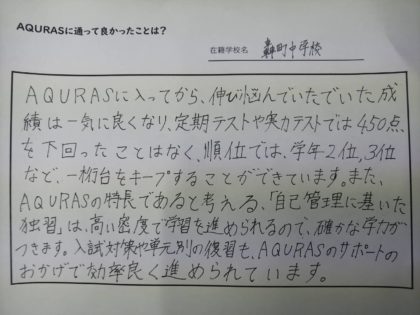 AQURASに通って良かったことは?
在籍学校名 轟町中学校
AQURASに入ってから、伸び悩んでいたでいた成
績は一気に良くなり、定期テストや実力テストでは450点
を下回ったことはなく、順位では、学年2位,3位
など、一桁台をキープすることができています。また、
AQURASの特長であると考える、「自己管理に基いた
独習」は、高い密度で学習を進められるので、確かな学力が
つきます。入試対策や単元別の復習も、AQURASのサポートの
おかげで効率良く進められています。